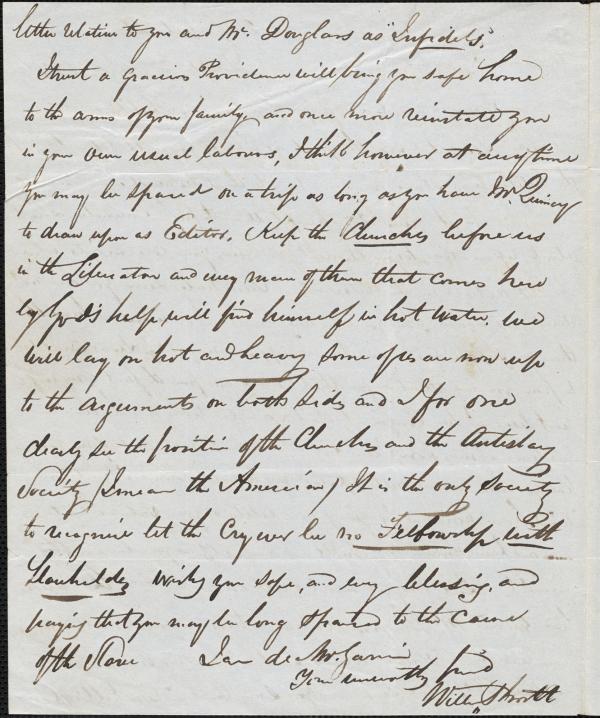 letter relative to you and Mr. Douglass as "Infidels".
I trust a gracious Providence will bring you safe home
to the arms of your family, and once more reinstate you
in your own usual labours, I think however at any time
you may be spared on a trip as long as you have Mr. Quincy
to draw upon as Editor. Keep the Churches before us
in the Liberator and every man of them that comes here
by God's help will find himself in hot water. we
will lay on hot and heavy some of us are now up
to the arguments on both sides and I for one
clearly see the position of the Churches and the Antislavy
Society (I mean the American) It is the only Society
to recognise let the Cry ever be no Fellowship with
Slaveholders wishing you safe, and every blessing, and
praying that you may be long spared to the Cause
of the Slave I am dear Mr Garrison
Your unworthy friend
Willm